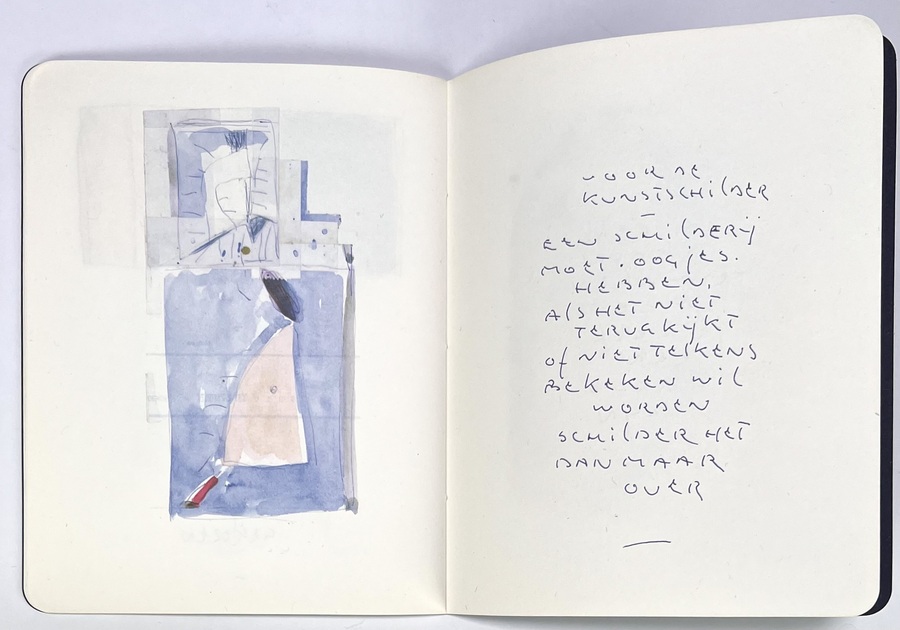 VOOR DE
KUNSTSCHILDER
–
EEN SCHILDERIJ
MOET . OOGJES .
HEBBEN,
ALS HET NIET
TERUGKIJKT
OF NIET TELKENS
BEKEKEN WIL
WORDEN
SCHILDER HET
DAN MAAR
OVER